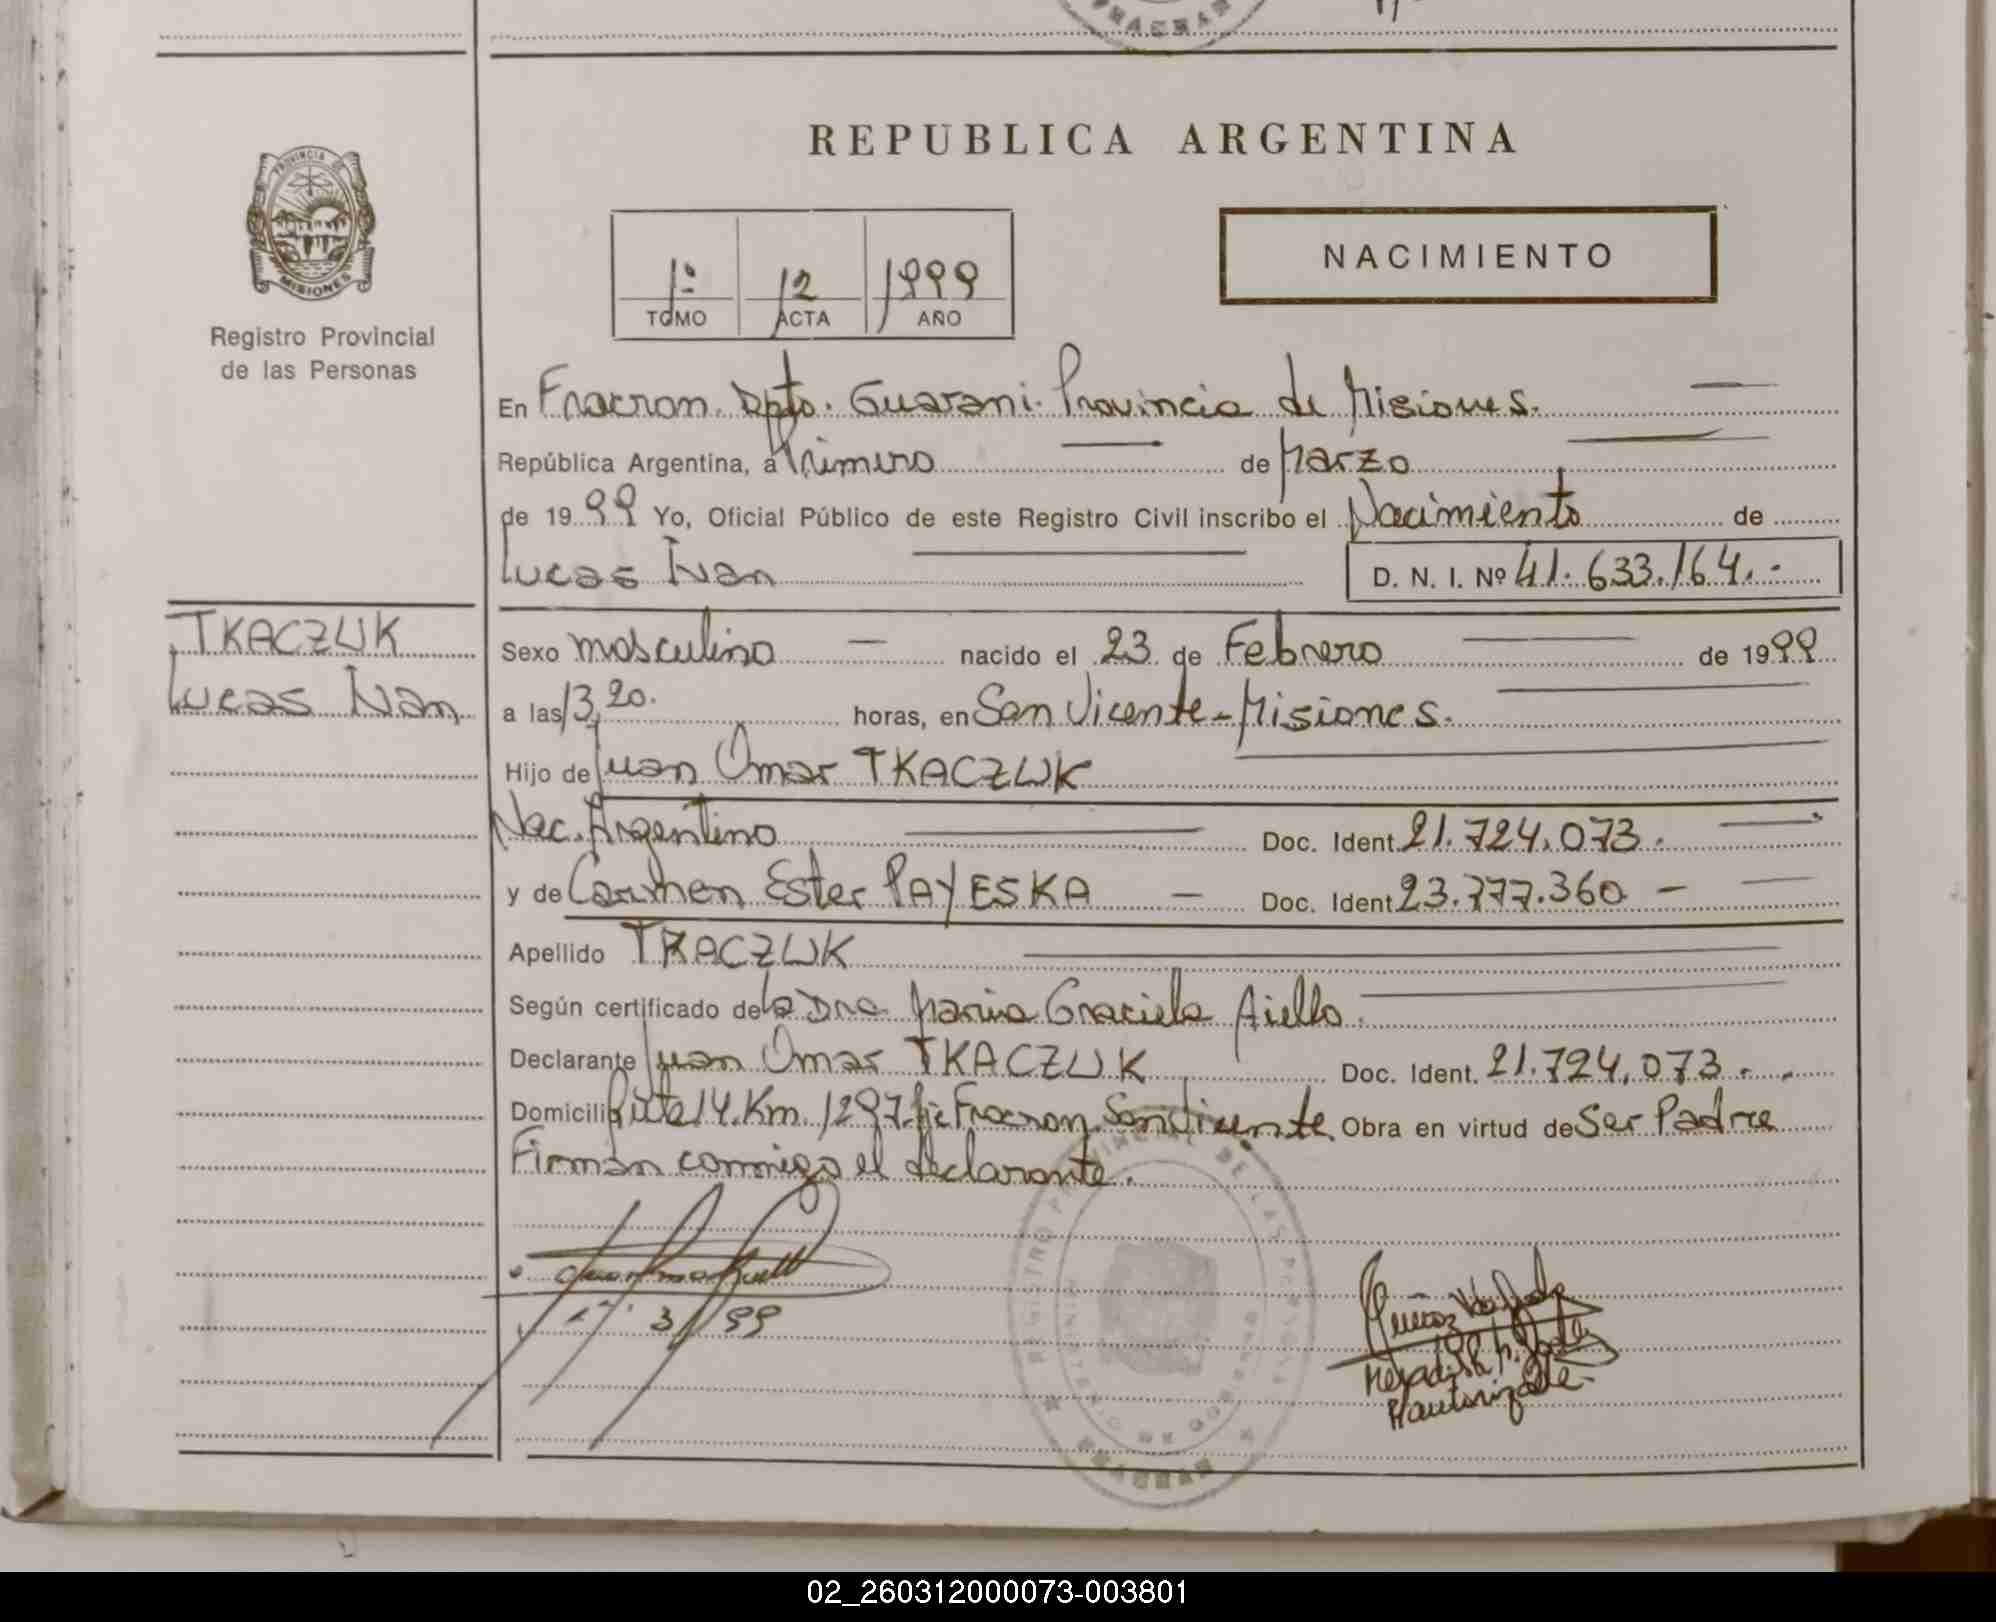 REPUBLICA ARGENTINA
PROVINCIA DE
MISIONES
Registro Provincial
de las Personas
1º 12 1999
TOMO ACTA AÑO
NACIMIENTO
En Fracron. Dpto. Guarani. Provincia de Misiones.
República Argentina, a Primero de Marzo
de 1999 Yo, Oficial Público de este Registro Civil inscribo el Nacimiento de
Lucas Ivan D. N. I. Nº 41.633.164.-
TKACZUK
Lucas Ivan
Sexo masculino — nacido el 23 de Febrero de 1999
a las 13,20. horas, en San Vicente-Misiones.
Hijo de Juan Omar TKACZUK
Nac. Argentino Doc. Ident 21.724.073.
y de Carmen Ester PAYESKA — Doc. Ident 23.777.360 —
Apellido TKACZUK
Según certificado de la Dra Maria Graciela Aiello.
Declarante Juan Omar TKACZUK Doc. Ident. 21.724,073.
Domicilio Ruta 14.Km.1297. Fracron. San Vicente Obra en virtud de Ser Padre
Firman conmigo el declarante.
REGISTRO PROVINCIAL DE LAS PERSONAS
MINISTERIO DE GOBIERNO
FRACRAN
1º 3/99
02_260312000073-003801